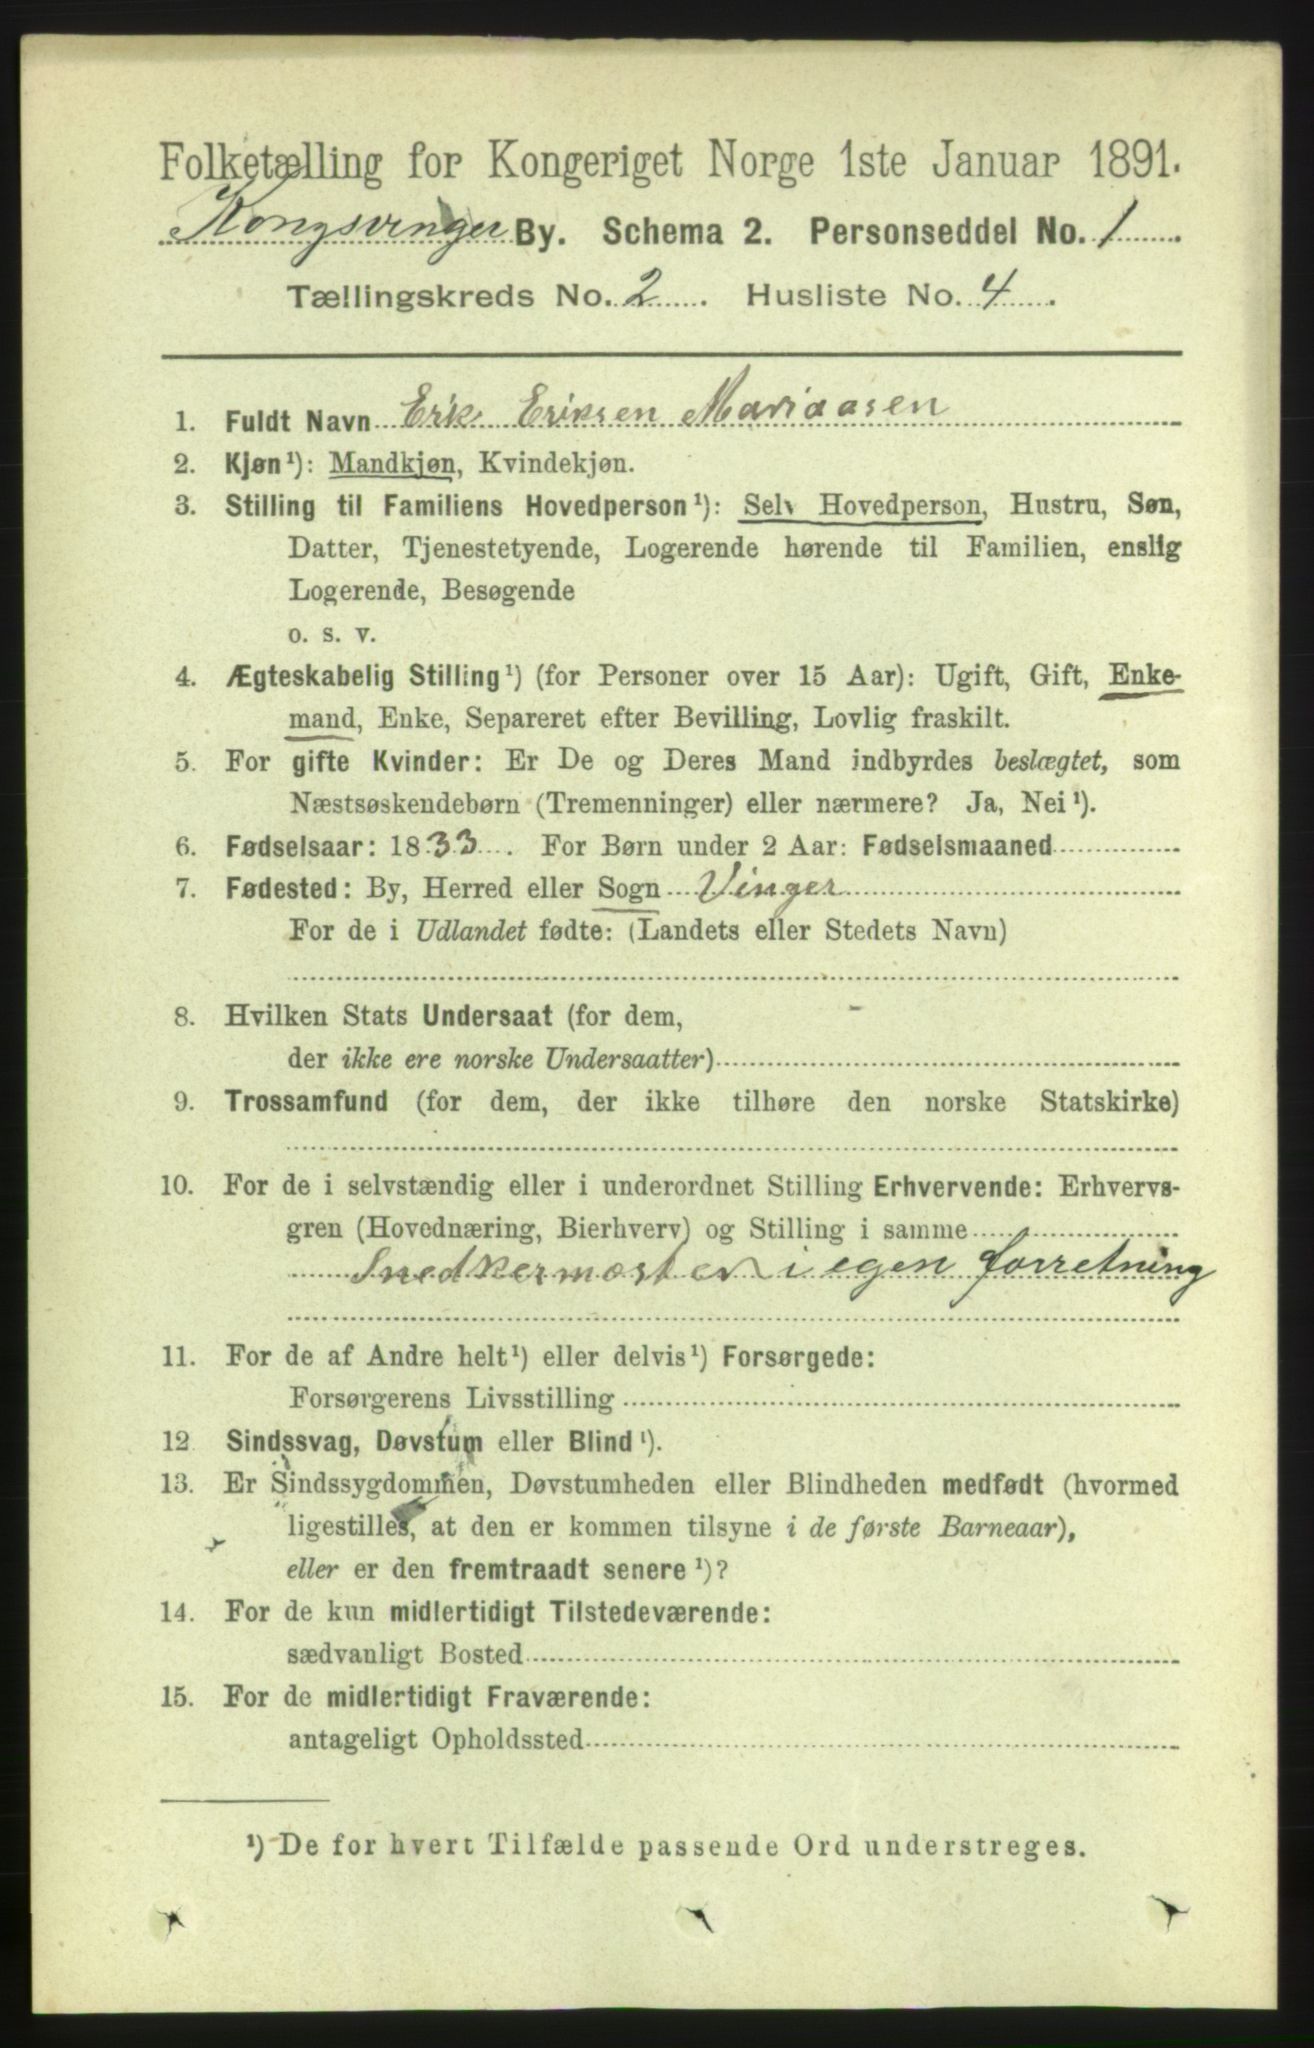 Folketælling for Kongeriget Norge 1ste Januar 1891.
Kongsvinger By. Schema 2. Personseddel No. 1
Tællingskreds No. 2. Husliste No. 4.
1. Fuldt Navn Erik Eriksen Mariaasen
2. Kjøn¹): Mandkjøn, Kvindekjøn.
3. Stilling til Familiens Hovedperson¹): Selv Hovedperson, Hustru, Søn,
Datter, Tjenestetyende, Logerende hørende til Familien, enslig
Logerende, Besøgende
o. s. v.
4. Ægteskabelig Stilling¹) (for Personer over 15 Aar): Ugift, Gift, Enke-
mand, Enke, Separeret efter Bevilling, Lovlig fraskilt.
5. For gifte Kvinder: Er De og Deres Mand indbyrdes beslægtet, som
Næstsøskendebørn (Tremenninger) eller nærmere? Ja, Nei¹).
6. Fødselsaar: 1833. For Børn under 2 Aar: Fødselsmaaned
7. Fødested: By, Herred eller Sogn Vinger
For de i Udlandet fødte: (Landets eller Stedets Navn)
8. Hvilken Stats Undersaat (for dem,
der ikke ere norske Undersaatter)
9. Trossamfund (for dem, der ikke tilhøre den norske Statskirke)
10. For de i selvstændig eller i underordnet Stilling Erhvervende: Erhvervs-
gren (Hovednæring, Bierhverv) og Stilling i samme
Snedkermester i egen forretning
11. For de af Andre helt¹) eller delvis¹) Forsørgede:
Forsørgerens Livsstilling
12 Sindssvag, Døvstum eller Blind¹).
13. Er Sindssygdommen, Døvstumheden eller Blindheden medfødt (hvormed
ligestilles, at den er kommen tilsyne i de første Barneaar),
eller er den fremtraadt senere¹)?
14. For de kun midlertidigt Tilstedeværende:
sædvanligt Bosted
15. For de midlertidigt Fraværende:
antageligt Opholdssted
¹) De for hvert Tilfælde passende Ord understreges.